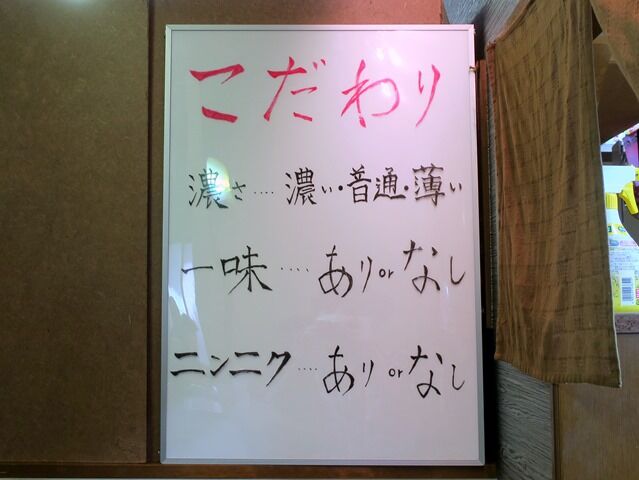 こだわり
濃さ‥‥濃い・普通・薄い
一味‥‥‥ありorなし
ニンニク‥‥ありorなし